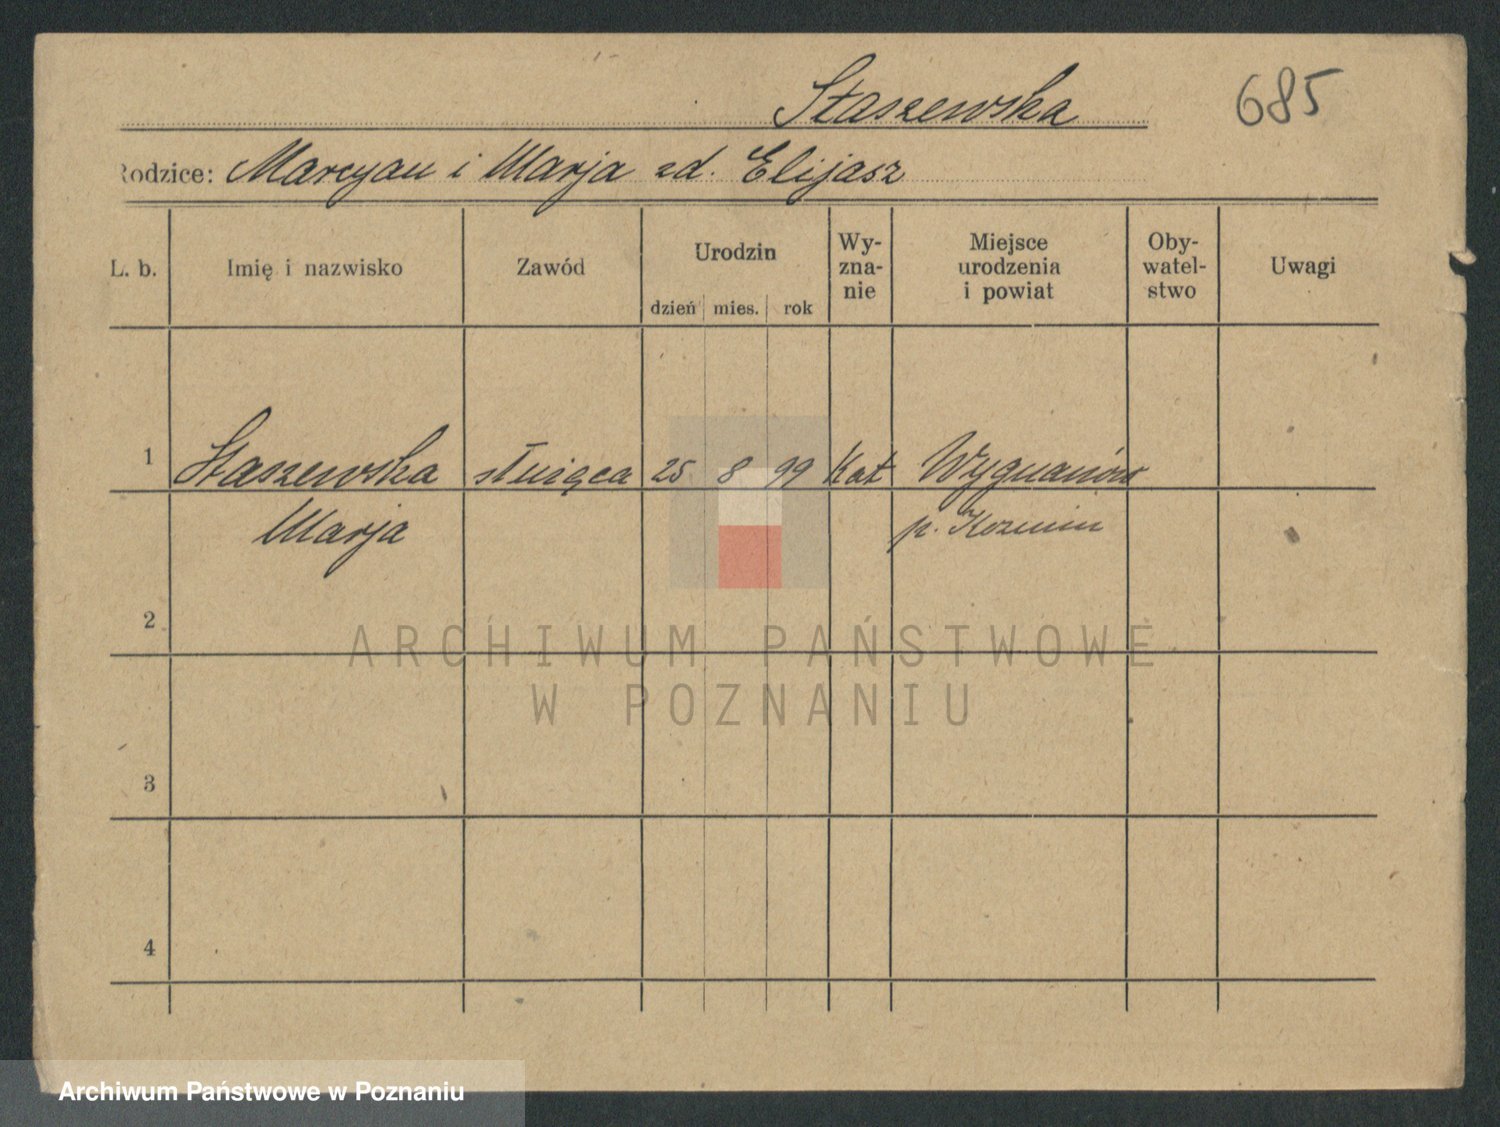 Staszewska
685
Rodzice: Marcyan i Marja zd. Elijasz
L. b.
Imię i nazwisko
Zawód
Urodzin
dzień mies. rok
Wy-
zna-
nie
Miejsce
urodzenia
i powiat
Oby-
watel-
stwo
Uwagi
1 Staszewska służąca 25 8 99 Kat Wygnanów
Marja p. Kozmin
2
ARCHIWUM PAŃSTWOWE
W POZNANIU
3
4
Archiwum Państwowe w Poznaniu